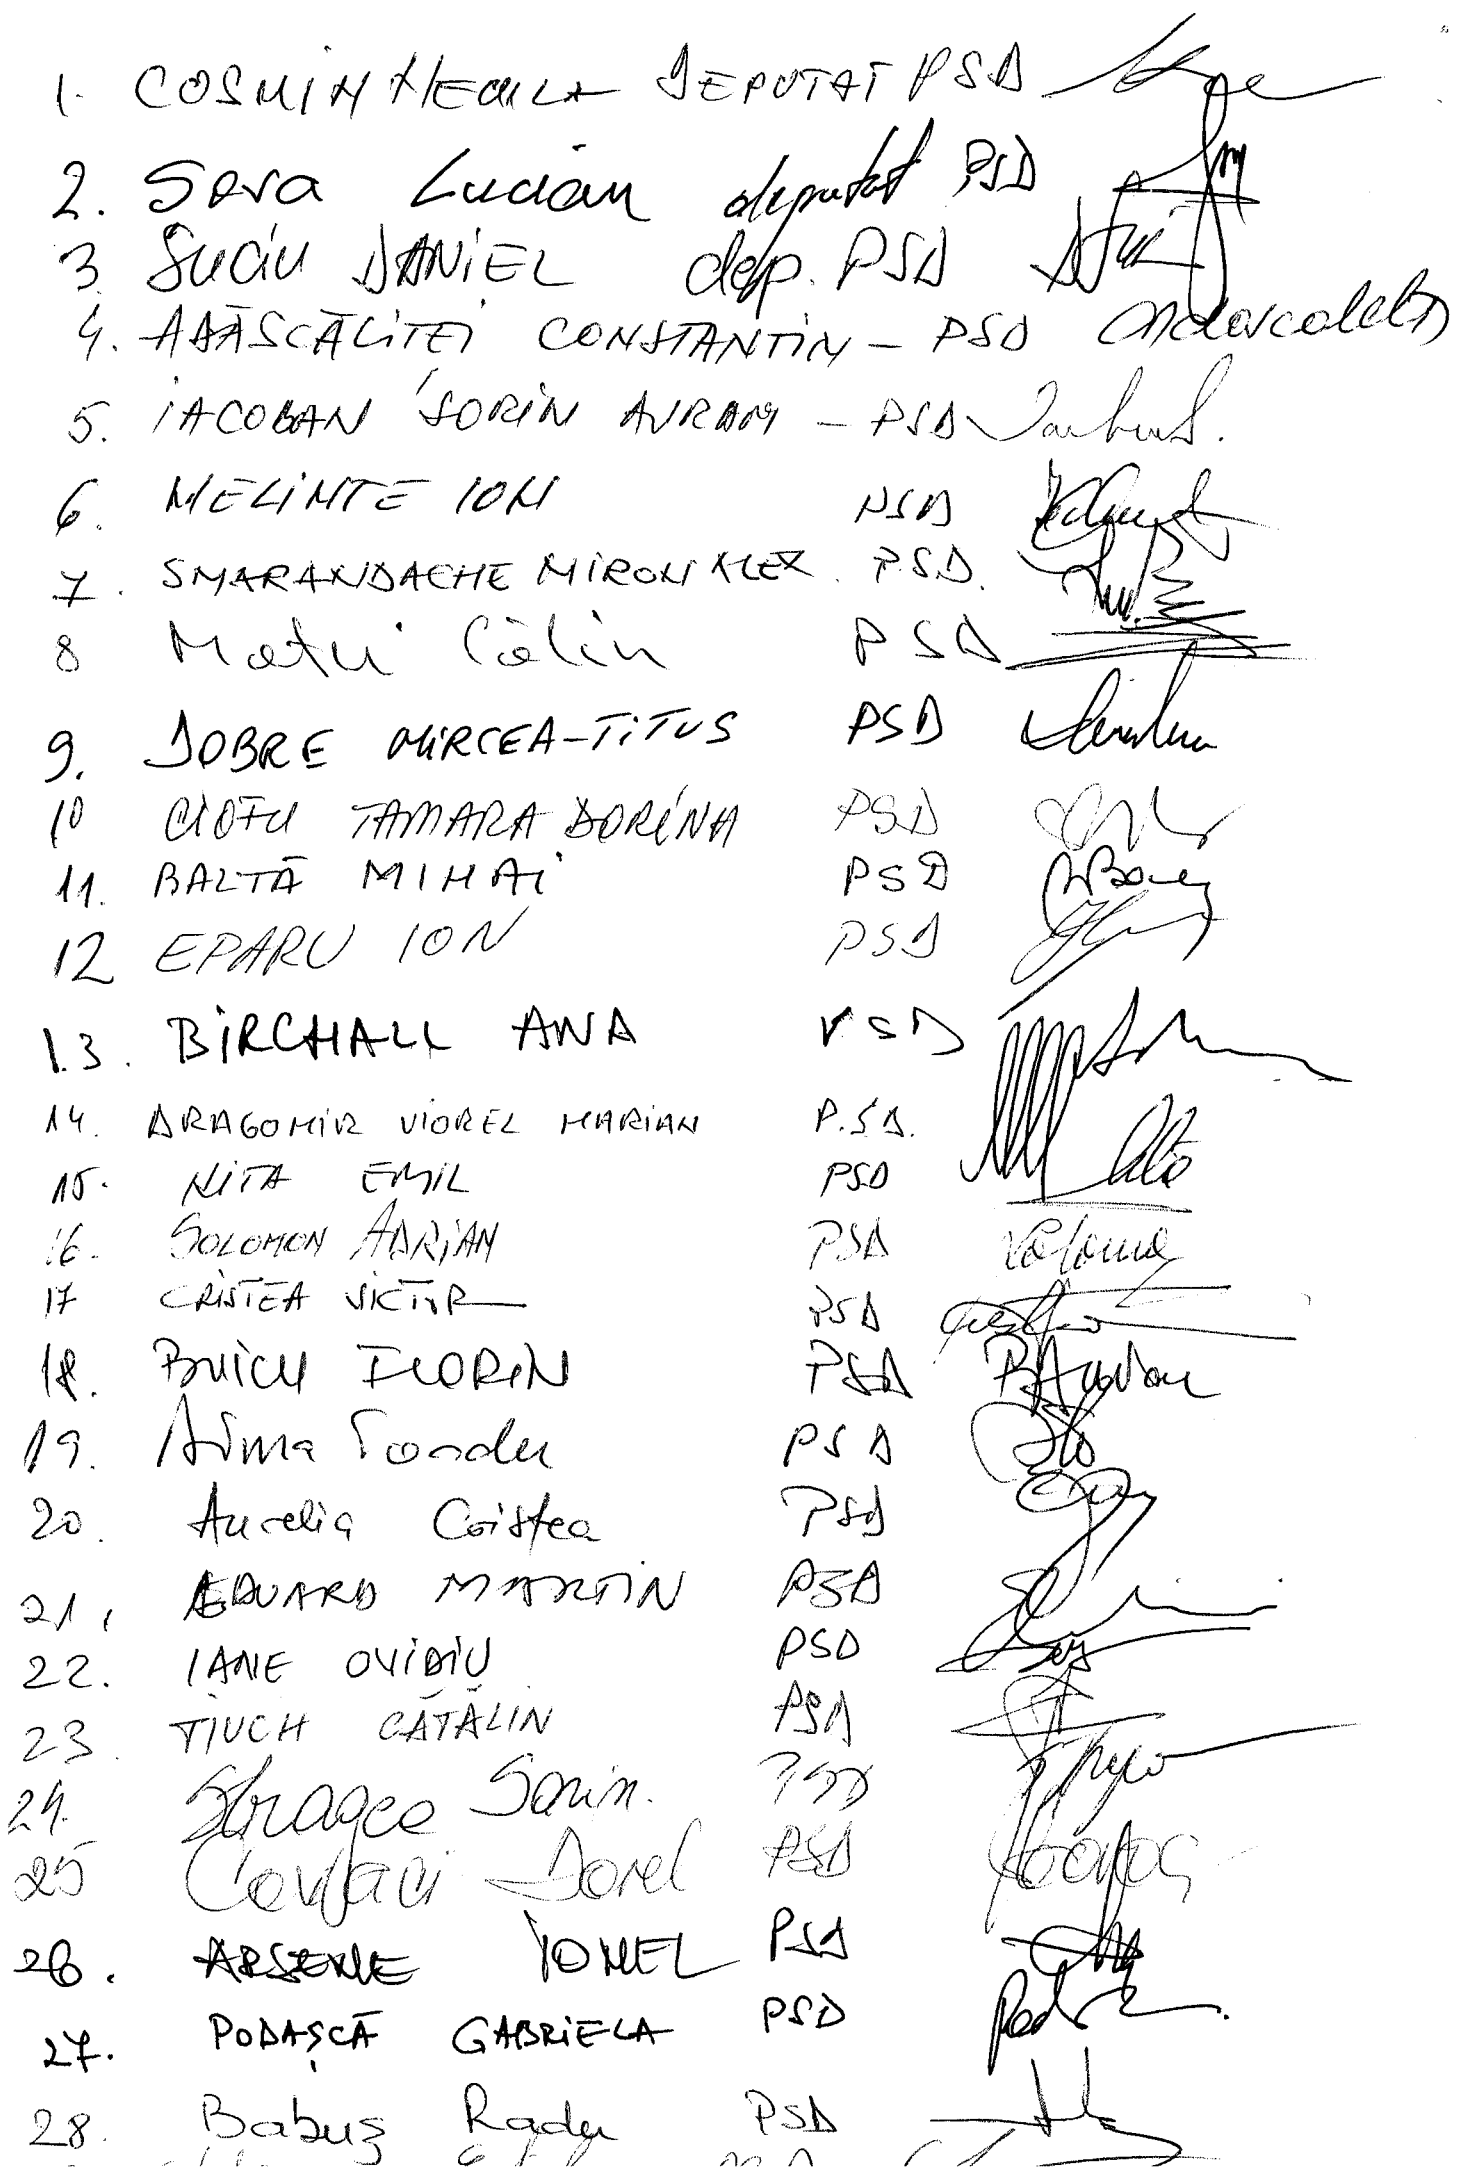 1. COSMIN NECULA DEPUTAT PSD
2. Sova Lucian deputat PSD
3. Suciu DANIEL dep. PSD
4. ADĂSCĂLIȚEI CONSTANTIN - PSD
5. IACOBAN SORIN AVRAM - PSD
6. MELINTE ION PSD
7. SMARANDACHE MIRON ALEX. PSD.
8 Matei Călin PSD
9. DOBRE MIRCEA-TITUS PSD
10 CIOFU TAMARA DORINA PSD
11. BALTĂ MIHAI PSD
12 EPARU ION PSD
13. BIRCHALL ANA PSD
14. DRAGOMIR VIOREL MARIAN P.S.D.
15. NIȚA EMIL PSD
16. SOLOMON ADRIAN PSD
17 CRISTEA VICTOR PSD
18. BUICU FLORIN PSD
19. PSD
20. Aurelia Cristea PSD
21, EDUARD MARTIN PSD
22. IANE OVIDIU PSD
23. TIUCH CĂTĂLIN PSD
24. Sorin. PSD
25 Covaci Dorel PSD
26. ARSENE IONEL PSD
27. PODAȘCĂ GABRIELA PSD
28. Babuș Radu PSD